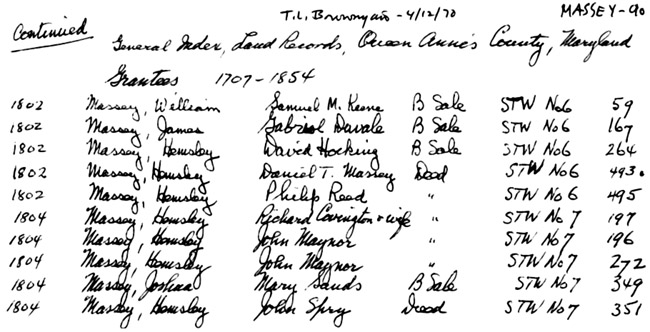 T.L. - 4/12/70 MASSEY-90
Continued
General Index, Land Records, Queen Anne's County, Maryland
Grantees 1707-1854
1802 Massey, William Samuel M. Keene B Sale STW No6 59
1802 Massey, James Gabriel Davale B Sale STW No6 167
1802 Massey, Hemsley David Hocking B Sale STW No6 264
1802 Massey, Hemsley Daniel T. Massey Deed STW No6 493.
1802 Massey, Hemsley Philip Reed " STW No 6 495
1804 Massey, Hemsley Richard Covington & wife " STW No 7 197
1804 Massey, Hemsley John Maynor " STW No 7 196
1804 Massey, Hemsley John Maynor " STW No7 272
1804 Massey, Joshua Mary Sands B Sale STW No7 349
1804 Massey, Hemsley John Spry Deed STW No7 351